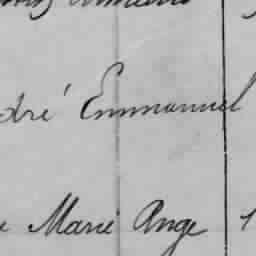 dré Emmanuel
e Marie Ange 1